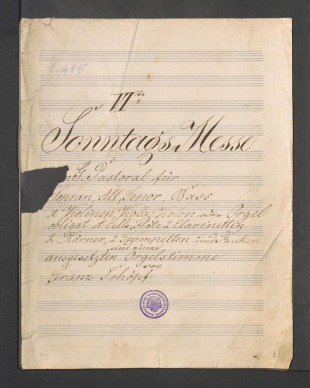 IIte
Sonntags Messe
Pastoral für
Sopran, Alt, Tenor, Bass
2 Violinen, Viola, Violon oder Orgel
obligat et Cello, Flöte 2 Clarinetten
2 Hörner, 2 Trompetten und Pauken
und einer
ausgesetzten Orgelstimme
von
Franz Schöpf